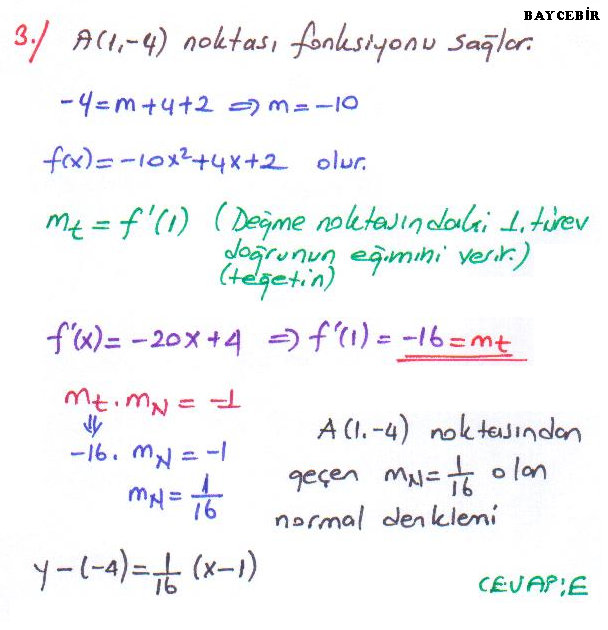 BAYCEBİR
3./ A(1,-4) noktası fonksiyonu sağlar.
-4=m+4+2 ⇒ m=-10
f(x)=-10x²+4x+2 olur.
mt = f'(1) (Değme noktasındaki 1. türev
doğrunun eğimini verir.)
(teğetin)
f'(x)= -20x+4 ⇒ f'(1) = -16 = mt
mt . mN = -1
⇓
-16. mN = -1
mN = 1/16
A(1.-4) noktasından
geçen mN = 1/16 olan
normal denklemi
y-(-4)= 1/16 (x-1)
CEVAP:E